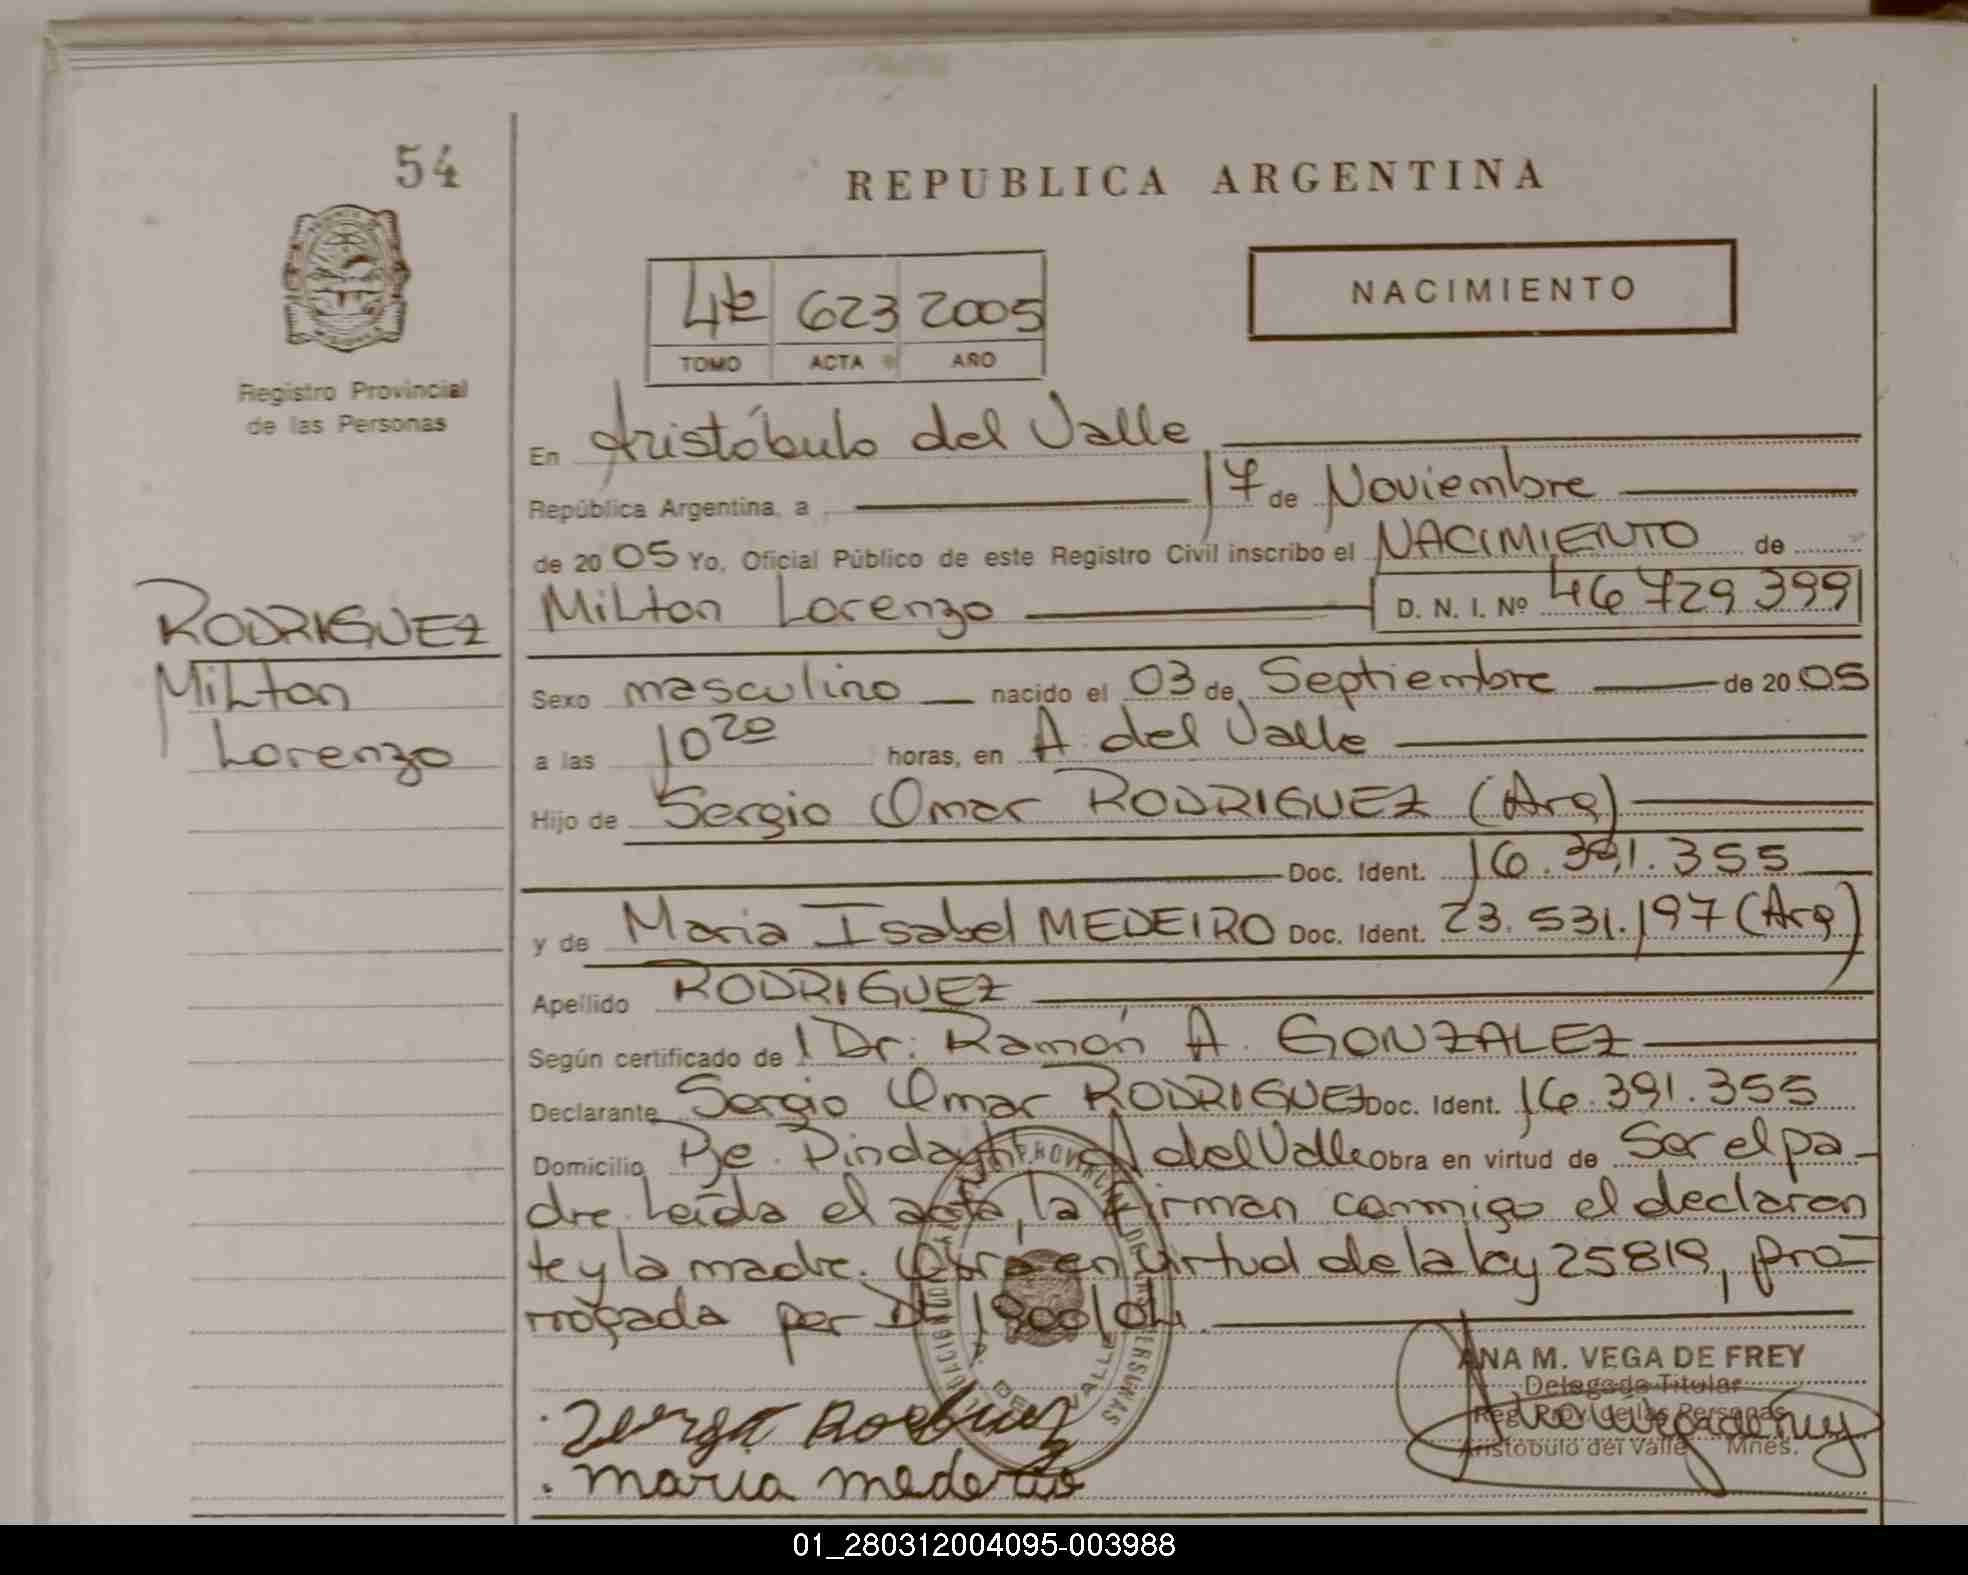 54
REPUBLICA ARGENTINA
4º 623 2005
TOMO ACTA AÑO
NACIMIENTO
Registro Provincial
de las Personas
En Aristóbulo del Valle
República Argentina, a 17 de Noviembre
de 2005 Yo, Oficial Público de este Registro Civil inscribo el NACIMIENTO de
RODRIGUEZ
Milton
Lorenzo
Milton Lorenzo D. N. I. Nº 46 729 399
Sexo masculino nacido el 03 de Septiembre de 2005
a las 10 20 horas, en A. del Valle
Hijo de Sergio Omar RODRIGUEZ (Arg)
Doc. Ident. 16.391.355
y de Maria Isabel MEDEIRO Doc. Ident. 23.531.197 (Arg)
Apellido RODRIGUEZ
Según certificado de Dr. Ramón A. GONZALEZ
Declarante Sergio Omar RODRIGUEZ Doc. Ident. 16.391.355
Domicilio Pje. A del Valle Obra en virtud de Ser el pa-
dre, Leída el acta, la firman conmigo el declaran
te y la madre. Obra en virtud de la ley 25819, pro-
rrogada por 1800/04.
ANA M. VEGA DE FREY
Delegada Titular
Reg. Prov. de las Personas
Aristóbulo del Valle Mnes.
maria medeiro
01_280312004095-003988